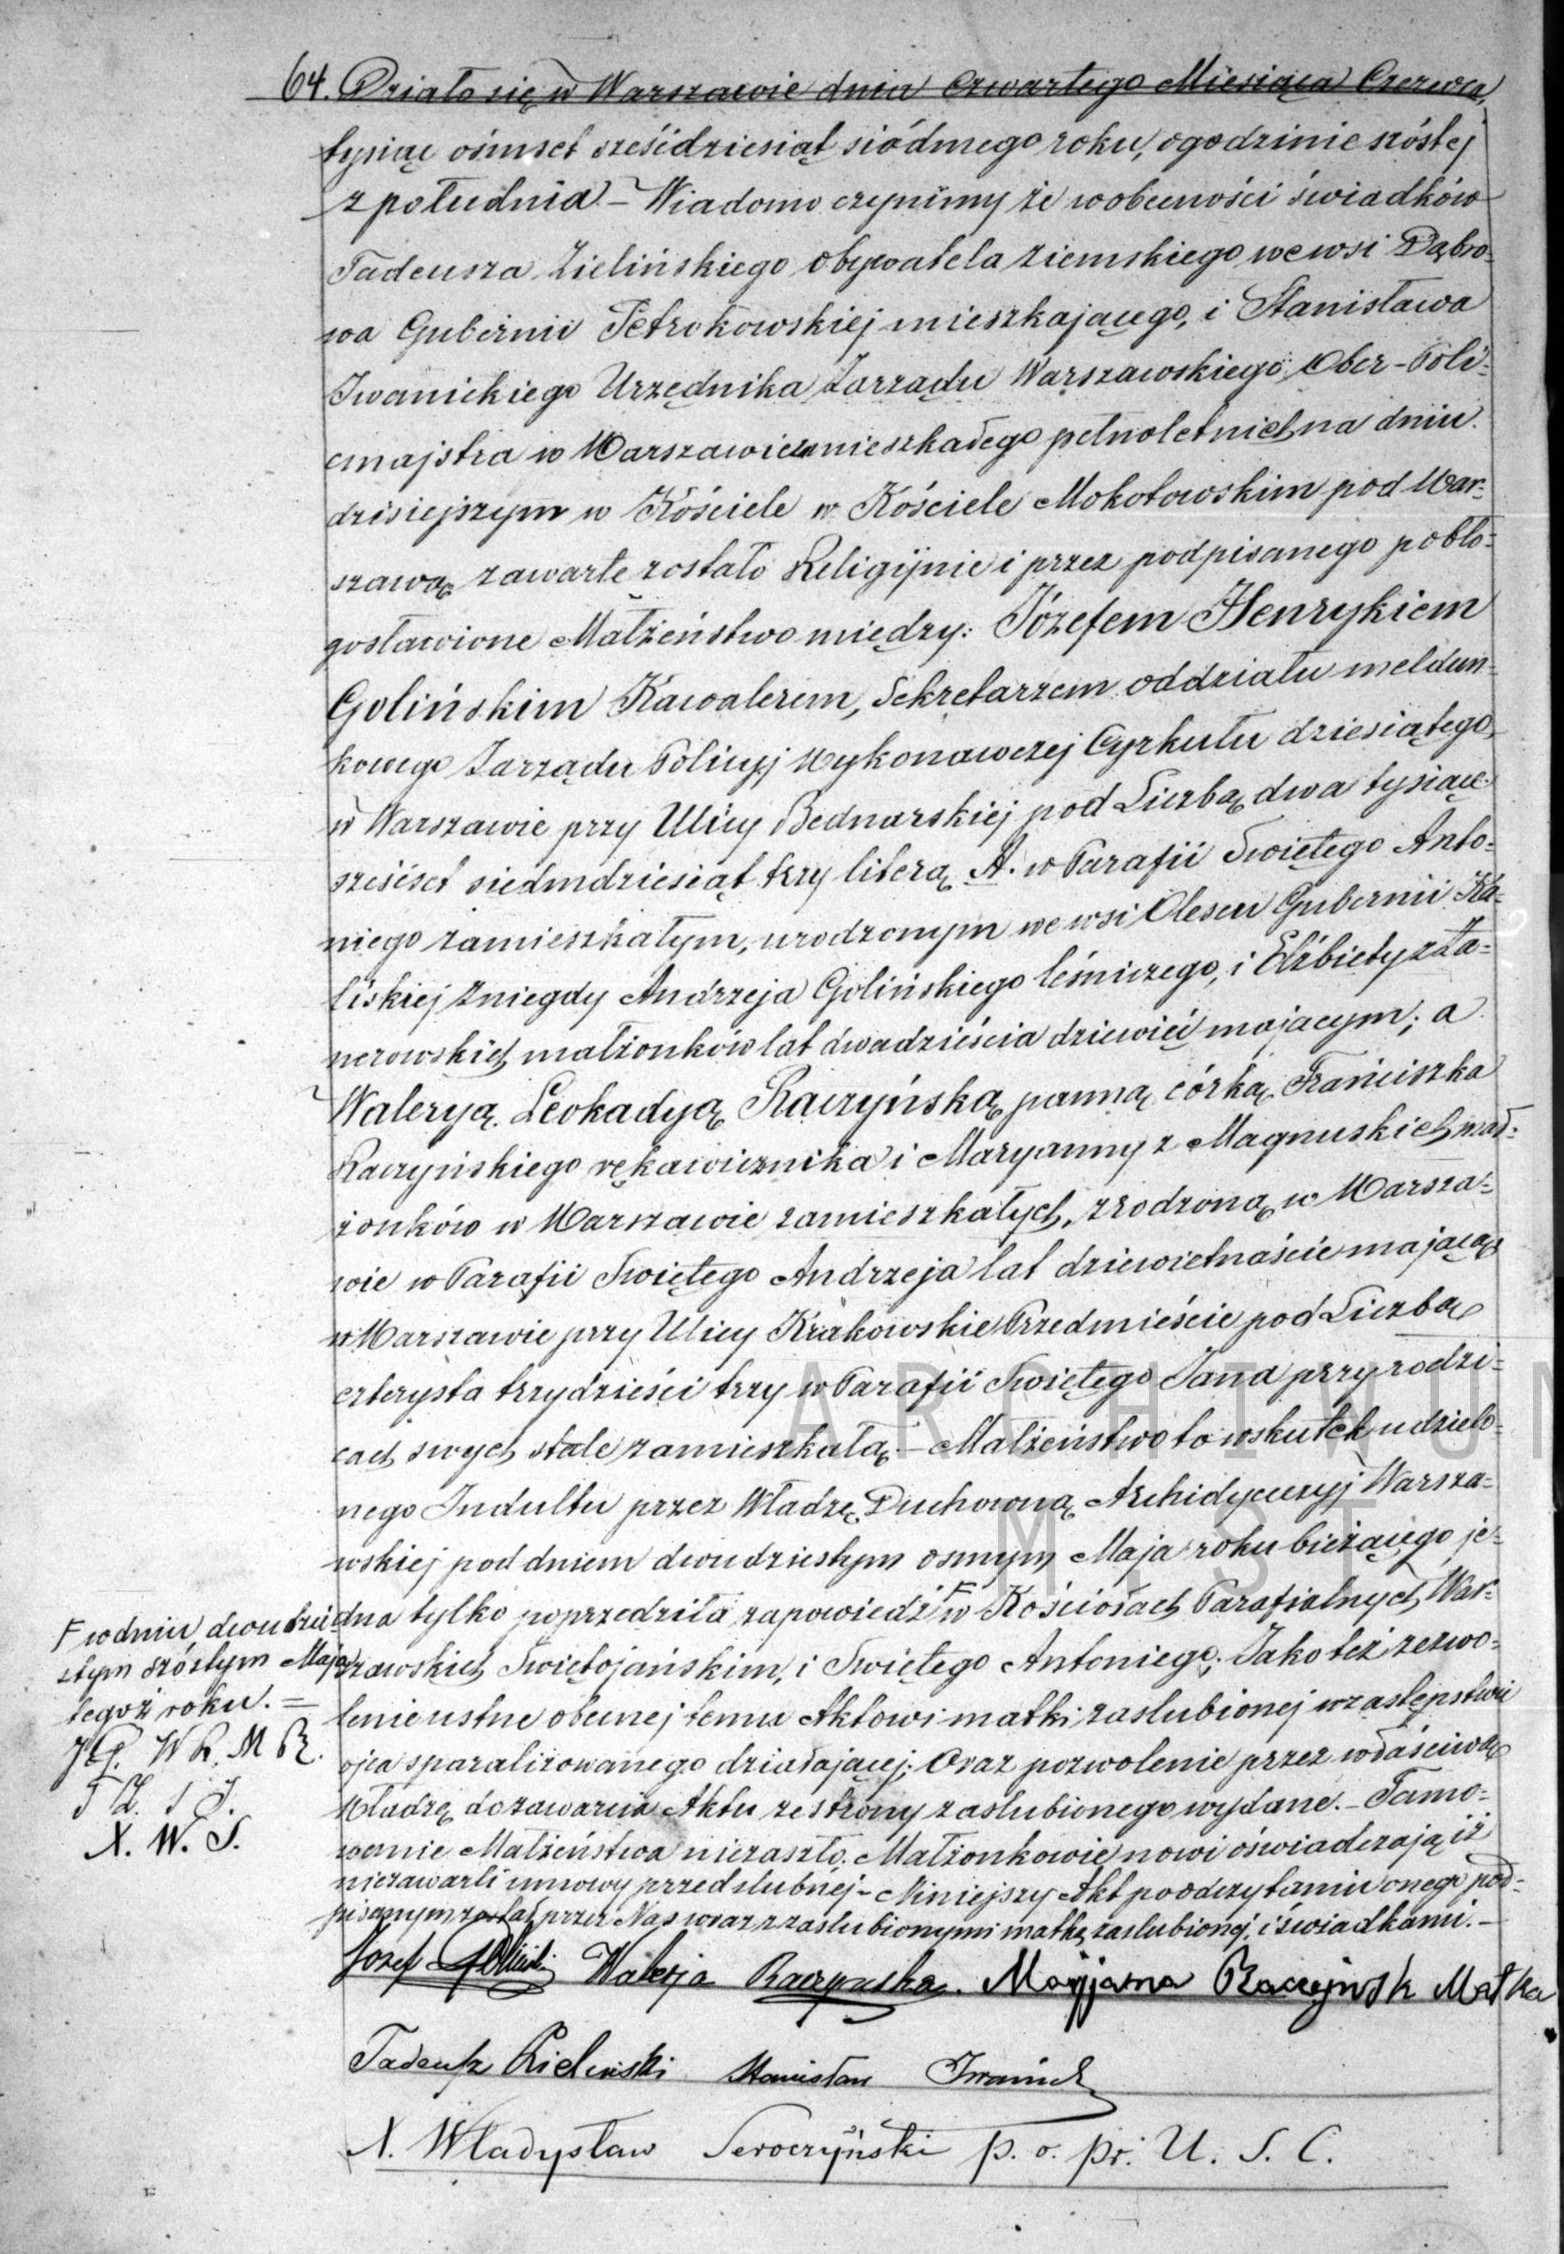 64. Działo się w Warszawie dnia Czwartego Miesiąca Czerwca,
tysiąc ośmset sześćdziesiąt siódmego roku, o godzinie szóstej
z południa. – Wiadomo czynimy że w obecności świadków
Tadeusza Zielińskiego obywatela ziemskiego we wsi Dąbro-
wa Gubernii Petrokowskiej mieszkającego, i Stanisława
Iwanickiego Urzędnika Zarządu Warszawskiego Ober-Poli-
cmajstra w Warszawie pełnoletnich na dniu
dzisiejszym w Kościele w Kościele Mokotowskim pod War-
szawą zawarte zostało Religijnie i przez podpisanego pobło-
gosławione Małżeństwo między: Józefem Henrykiem
Golińskim Kawalerem, Sekretarzem oddziału meldun-
kowego Zarządu Policyj Wykonawczej Cyrkułu dziesiątego,
w Warszawie przy Ulicy Bednarskiej pod Liczbą dwa tysiące
sześćset siedmdziesiąt trzy literą A. w Parafii Świętego Anto-
niego zamieszkałym, urodzonym we wsi Olescu Gubernii Ka-
liskiej z niegdy Andrzeja Golińskiego leśniczego, i Elżbiety z Ła-
nerowskich małżonków lat dwadzieścia dziewięć mającym; a
Waleryą Leokadyą Raczyńską panną córką Franciszka
Raczyńskiego rękawicznika i Maryanny z Magnuskich mał-
żonków w Warszawie zamieszkałych, zrodzoną w Warsza-
wie w Parafii Świętego Andrzeja lat dziewietnaście mającą
w Warszawie przy Ulicy Krakowskie Przedmieście pod Liczbą
czterysta trzydzieści trzy w Parafii Świętego Jana przy rodzi-
cach swych stale zamieszkałą. – Małżeństwo to wskutek udzielo-
nego Indultu przez Władzę Duchowną Archidyecezyj Warsza-
wskiej pod dniem dwudziestym osmym Maja roku bieżącego je-
dna tylko poprzedziła zapowiedź F w Kościołach Parafialnych War-
szawskich Świętojańskim, i Świętego Antoniego; Jako też zezwo-
lenie ustne obecnej temu Aktowi matki zaslubionej w zastępstwie
ojca sparaliżowanego działającej; Oraz pozwolenie przez właściwą
Władzę do zawarcia Aktu ze strony zaslubionego wydane. – Tamo-
wanie Małżeństwa nie zaszło. Małżonkowie nowi oświadczają iż
niezawarli umowy przedslubnej – Niniejszy Akt po odczytaniu onego pod-
pisanym został przez Nas wraz z zaslubionymi matką zaslubionej, i świadkami. –
F w dniu dwudzie-
stym szóstym Maja
tegoż roku. =
J G. W R. M R.
T Z. S J.
X. W. S.
Józef Goliński Walerja Raczyńska. Maryjanna Raczyńsk Matka
Tadeusz Zieliński Stanisław Iwanicki
X. Władysław Seroczyński p. o. pr. U. S. C.
ARCHIWUM
M. ST